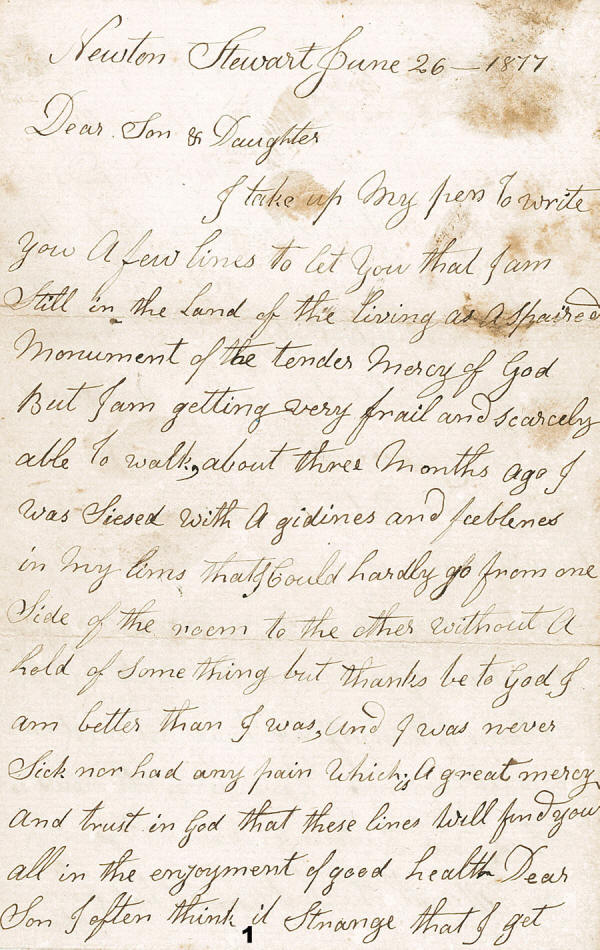 Newton Stewart June 26 — 1877
Dear Son & Daughter
I take up My pen To write
you A few lines to let You that I am
Still in the Land of the living as A Spaired
Monument of the tender Mercy of God
But I am getting very frail and scarcely
able To walk, about three Months ago I
was Siesed with A gidines and feeblenes
in My lims that I Could hardly go from one
Side of the room to the other without A
hold of Some thing but thanks be to God I
am better than I was, And I was never
Sick nor had any pain Which is A great mercy
And trust in God that these lines Will find you
all in the enjoyment of good health Dear
Son I often think it Strange that I get
1